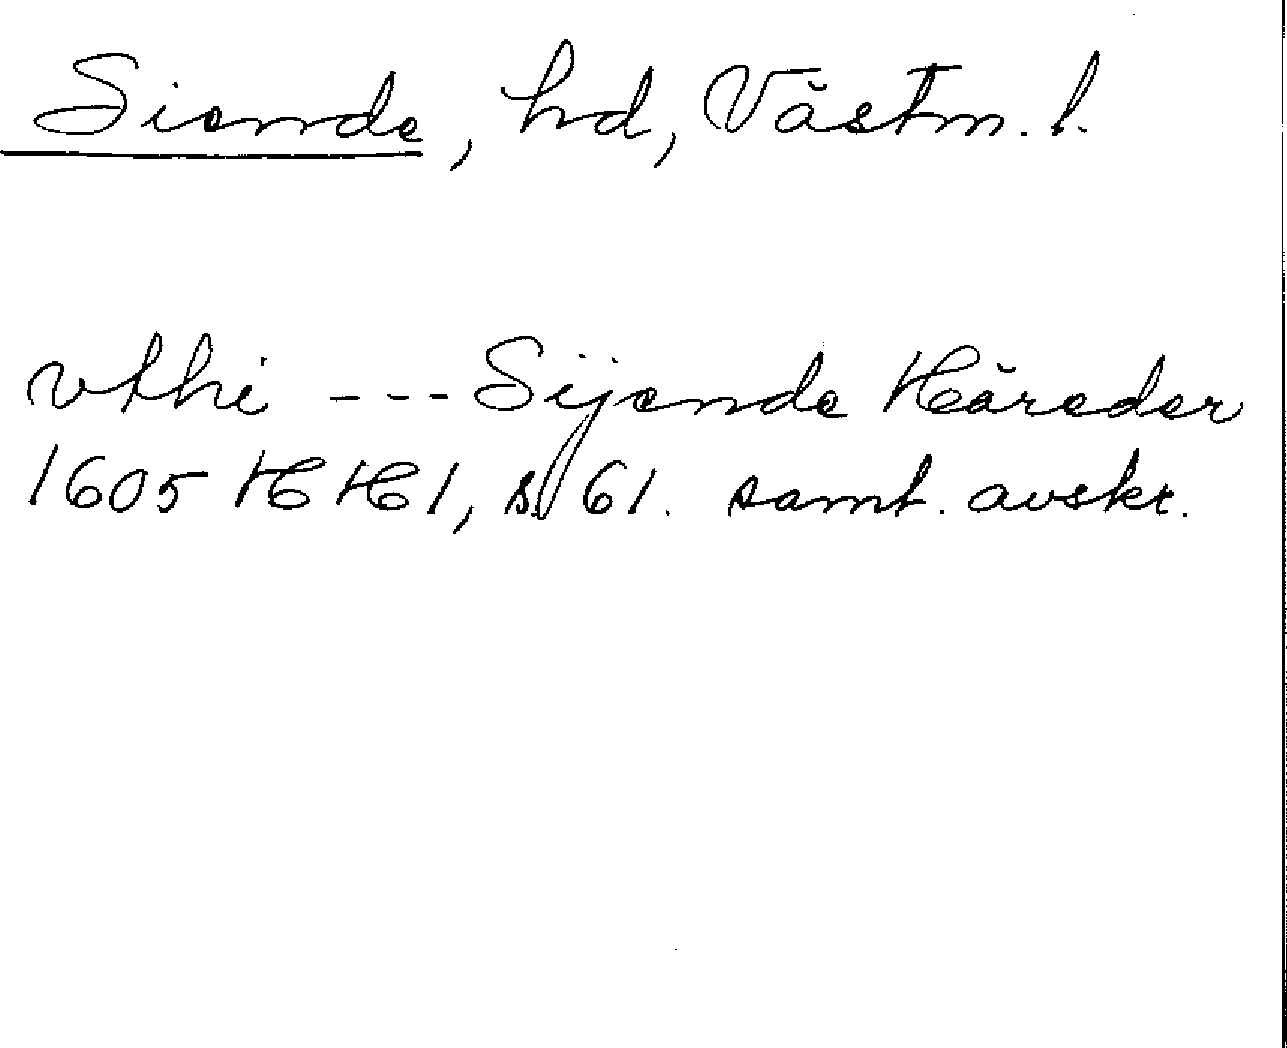 Siende, hd, Västm. l.
vthi --- Sijende Häreder
1605 HH 1, s. 61. samt. avskr.